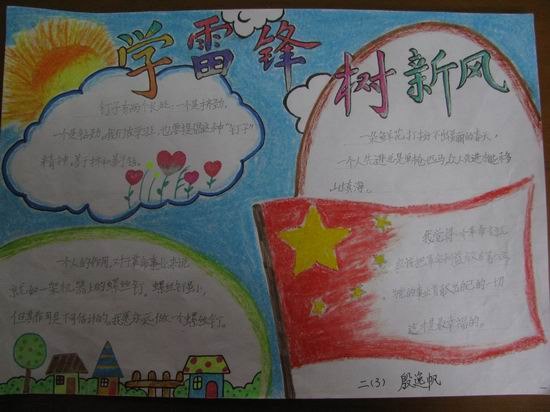 学雷锋 树新风
钉子有两个长处：一个是挤劲，
一个是钻劲。我们在学习上，也要提倡这种“钉子”
精神，善于挤和善于钻。
一朵鲜花打扮不出美丽的春天，
一个人先进总是单枪匹马，众人先进才能移
山填海。
一个人的作用，对于革命事业来说，
就如一架机器上的螺丝钉。螺丝钉虽小，
但其作用是不可估计的。我愿永远做一个螺丝钉。
我觉得一个革命者就
应该把革命利益放在第一位，
为党的事业贡献出自己的一切
这才是最幸福的。
二(3) 殷逸帆